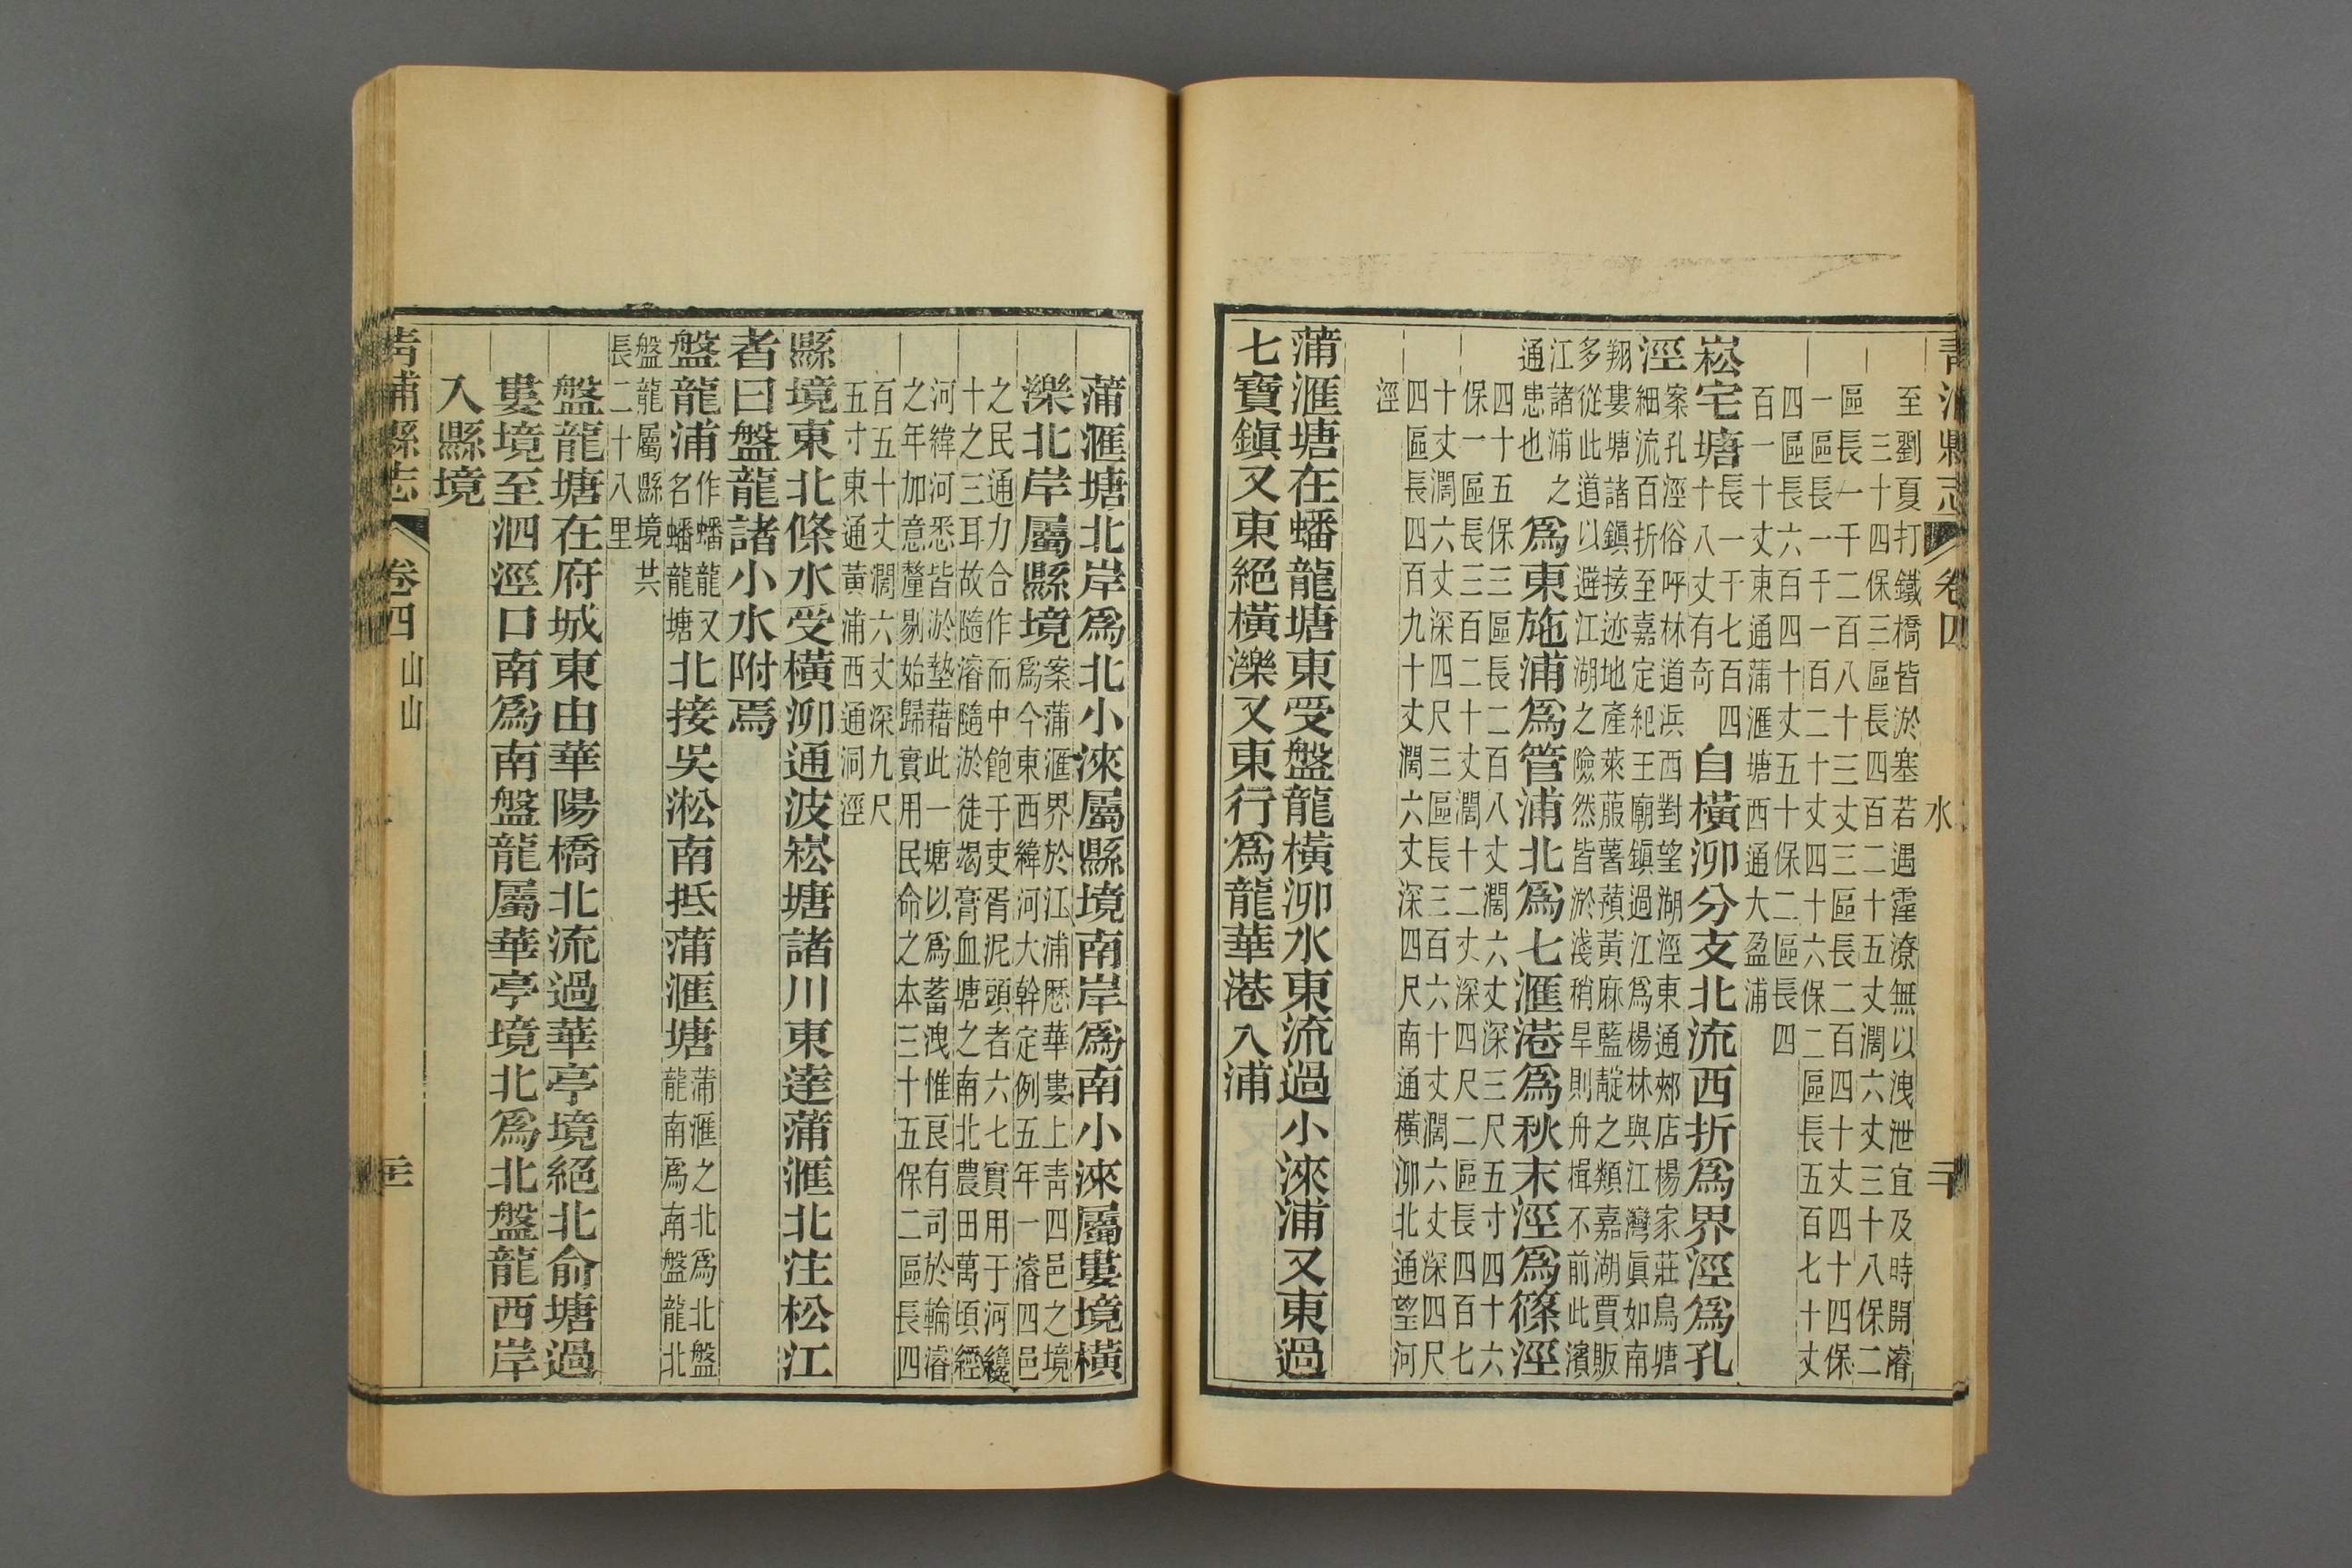 青浦縣志 卷四 水 二十
至劉夏打鐵橋皆淤塞若遇霪潦無以洩泄宜及時開濬
三十四保三區長四百二十五丈濶六丈三十八保二
區長一千二百八十三丈三區長二百四十丈四十四保
一區長一千一百二十丈四十六保二區長五百七十丈
四區長六百四十丈五十保二區長四
百一十丈東通蒲滙塘西通大盈浦
崧宅塘
長一千七百四
十八丈有奇
自橫泖分支北流西折爲界涇爲孔
涇
案孔涇俗呼林道浜西對望湖涇東通郟店楊家莊鳥塘
細流百折至嘉定紀王廟鎮過江爲楊林與江灣眞如南
翔婁塘諸鎮接迹地產萊菔薯蕷黃麻藍靛之類嘉湖賈販
多從此道以避江湖之險然皆淤淺稍旱則舟楫不前此濱
江諸浦之
通患也
爲東施浦爲管浦北爲七滙港爲秋末涇爲篠涇
四十五保三區長二百八丈濶六丈深三尺五寸四十六
保一區長三百二十丈濶十二丈深四尺二區長四百七
十丈濶六丈深四尺三區長三百六十丈濶六丈深四尺
四區長四百九十丈濶六丈深四尺南通橫泖北通望河
涇
蒲滙塘在蟠龍塘東受盤龍橫泖水東流過小淶浦又東過
七寶鎭又東絕橫瀿又東行爲龍華港入浦
蒲滙塘北岸爲北小淶屬縣境南岸爲南小淶屬婁境橫
瀿北岸屬縣境
案蒲滙界於江浦歷華婁上靑四邑之境
爲今東西緯河大幹定例五年一濬四邑
之民通力合作而中飽于吏胥泥頭者六七實用于河纔
十之三耳故隨濬隨淤徒竭膏血塘之南北農田萬頃經
河緯河悉皆淤墊藉此一塘以爲蓄洩惟良有司於輪濬
之年加意釐剔始歸實用民命之本三十五保二區長四
百五十丈濶六丈深九尺
五寸東通黃浦西通洞涇
縣境東北條水受橫泖通波崧塘諸川東達蒲滙北注松江
者曰盤龍諸小水附焉
盤龍浦
作蟠龍又
名蟠龍塘
北接吳淞南抵蒲滙塘
蒲滙之北爲北盤
龍南爲南盤龍北
盤龍屬縣境共
長二十八里
盤龍塘在府城東由華陽橋北流過華亭境絕北俞塘過
婁境至泗涇口南爲南盤龍屬華亭境北爲北盤龍西岸
入縣境
青浦縣志 卷四 山山